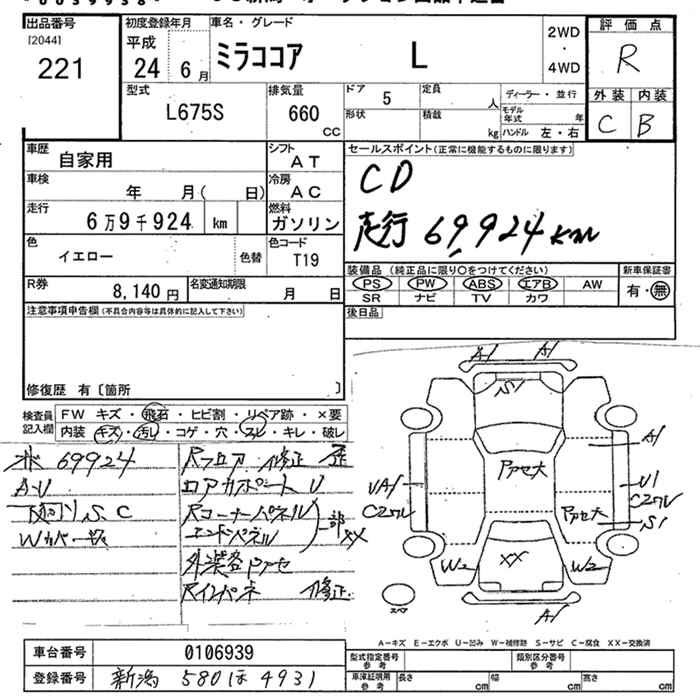 出品番号
[2044]
221
初度登録年月
平成
24 6月
車名・グレード
ミラココア L
2WD
・
4WD
評価点
R
外装 内装
C B
型式
L675S
排気量
660
CC
ドア
5
定員
人
ディーラー・並行
形状
積載
kg
モデル年式
年
ハンドル 左・右
車歴
自家用
シフト
AT
車検
年 月( 日)
冷房
AC
走行
6万9千924 km
燃料
ガソリン
色
イエロー
色替
色コード
T19
R券
8,140 円
名変通知期限
月 日
セールスポイント(正常に機能するものに限ります)
CD
走行 69,924km
装備品(純正品に限り○をつけてください)
PS PW ABS エアB AW
SR ナビ TV カワ
新車保証書
有・無
後日品
注意事項申告欄(不具合内容等は具体的に記入して下さい)
修復歴 有〔箇所 〕
検査員
記入欄
FW キズ・飛石・ヒビ割・リペア跡・×要
内装 キズ・汚レ・コゲ・穴・スレ・キレ・破レ
69924
A・U
下廻りS、C
Wカバー
Rフロア 修正 歴
ロアカバーサポート U
Rコーナーパネル
エンドパネル
一部
XX
外装色アセ
Rインパネ 修正
A1 A1
S1
A1
アセ大
UA1
U1
Cエクル
Cエクル
アセ大
S1
W2 XX W2
A1
スペア
A-キズ E-エクボ U-凹み W-補修跡 S-サビ C-腐食 XX-交換済
車台番号
0106939
登録番号
新潟 580 ほ 4931
型式指定番号
参考
類別区分番号
参考
車庫証明用
参考
長さ
cm
幅
cm
高さ
cm